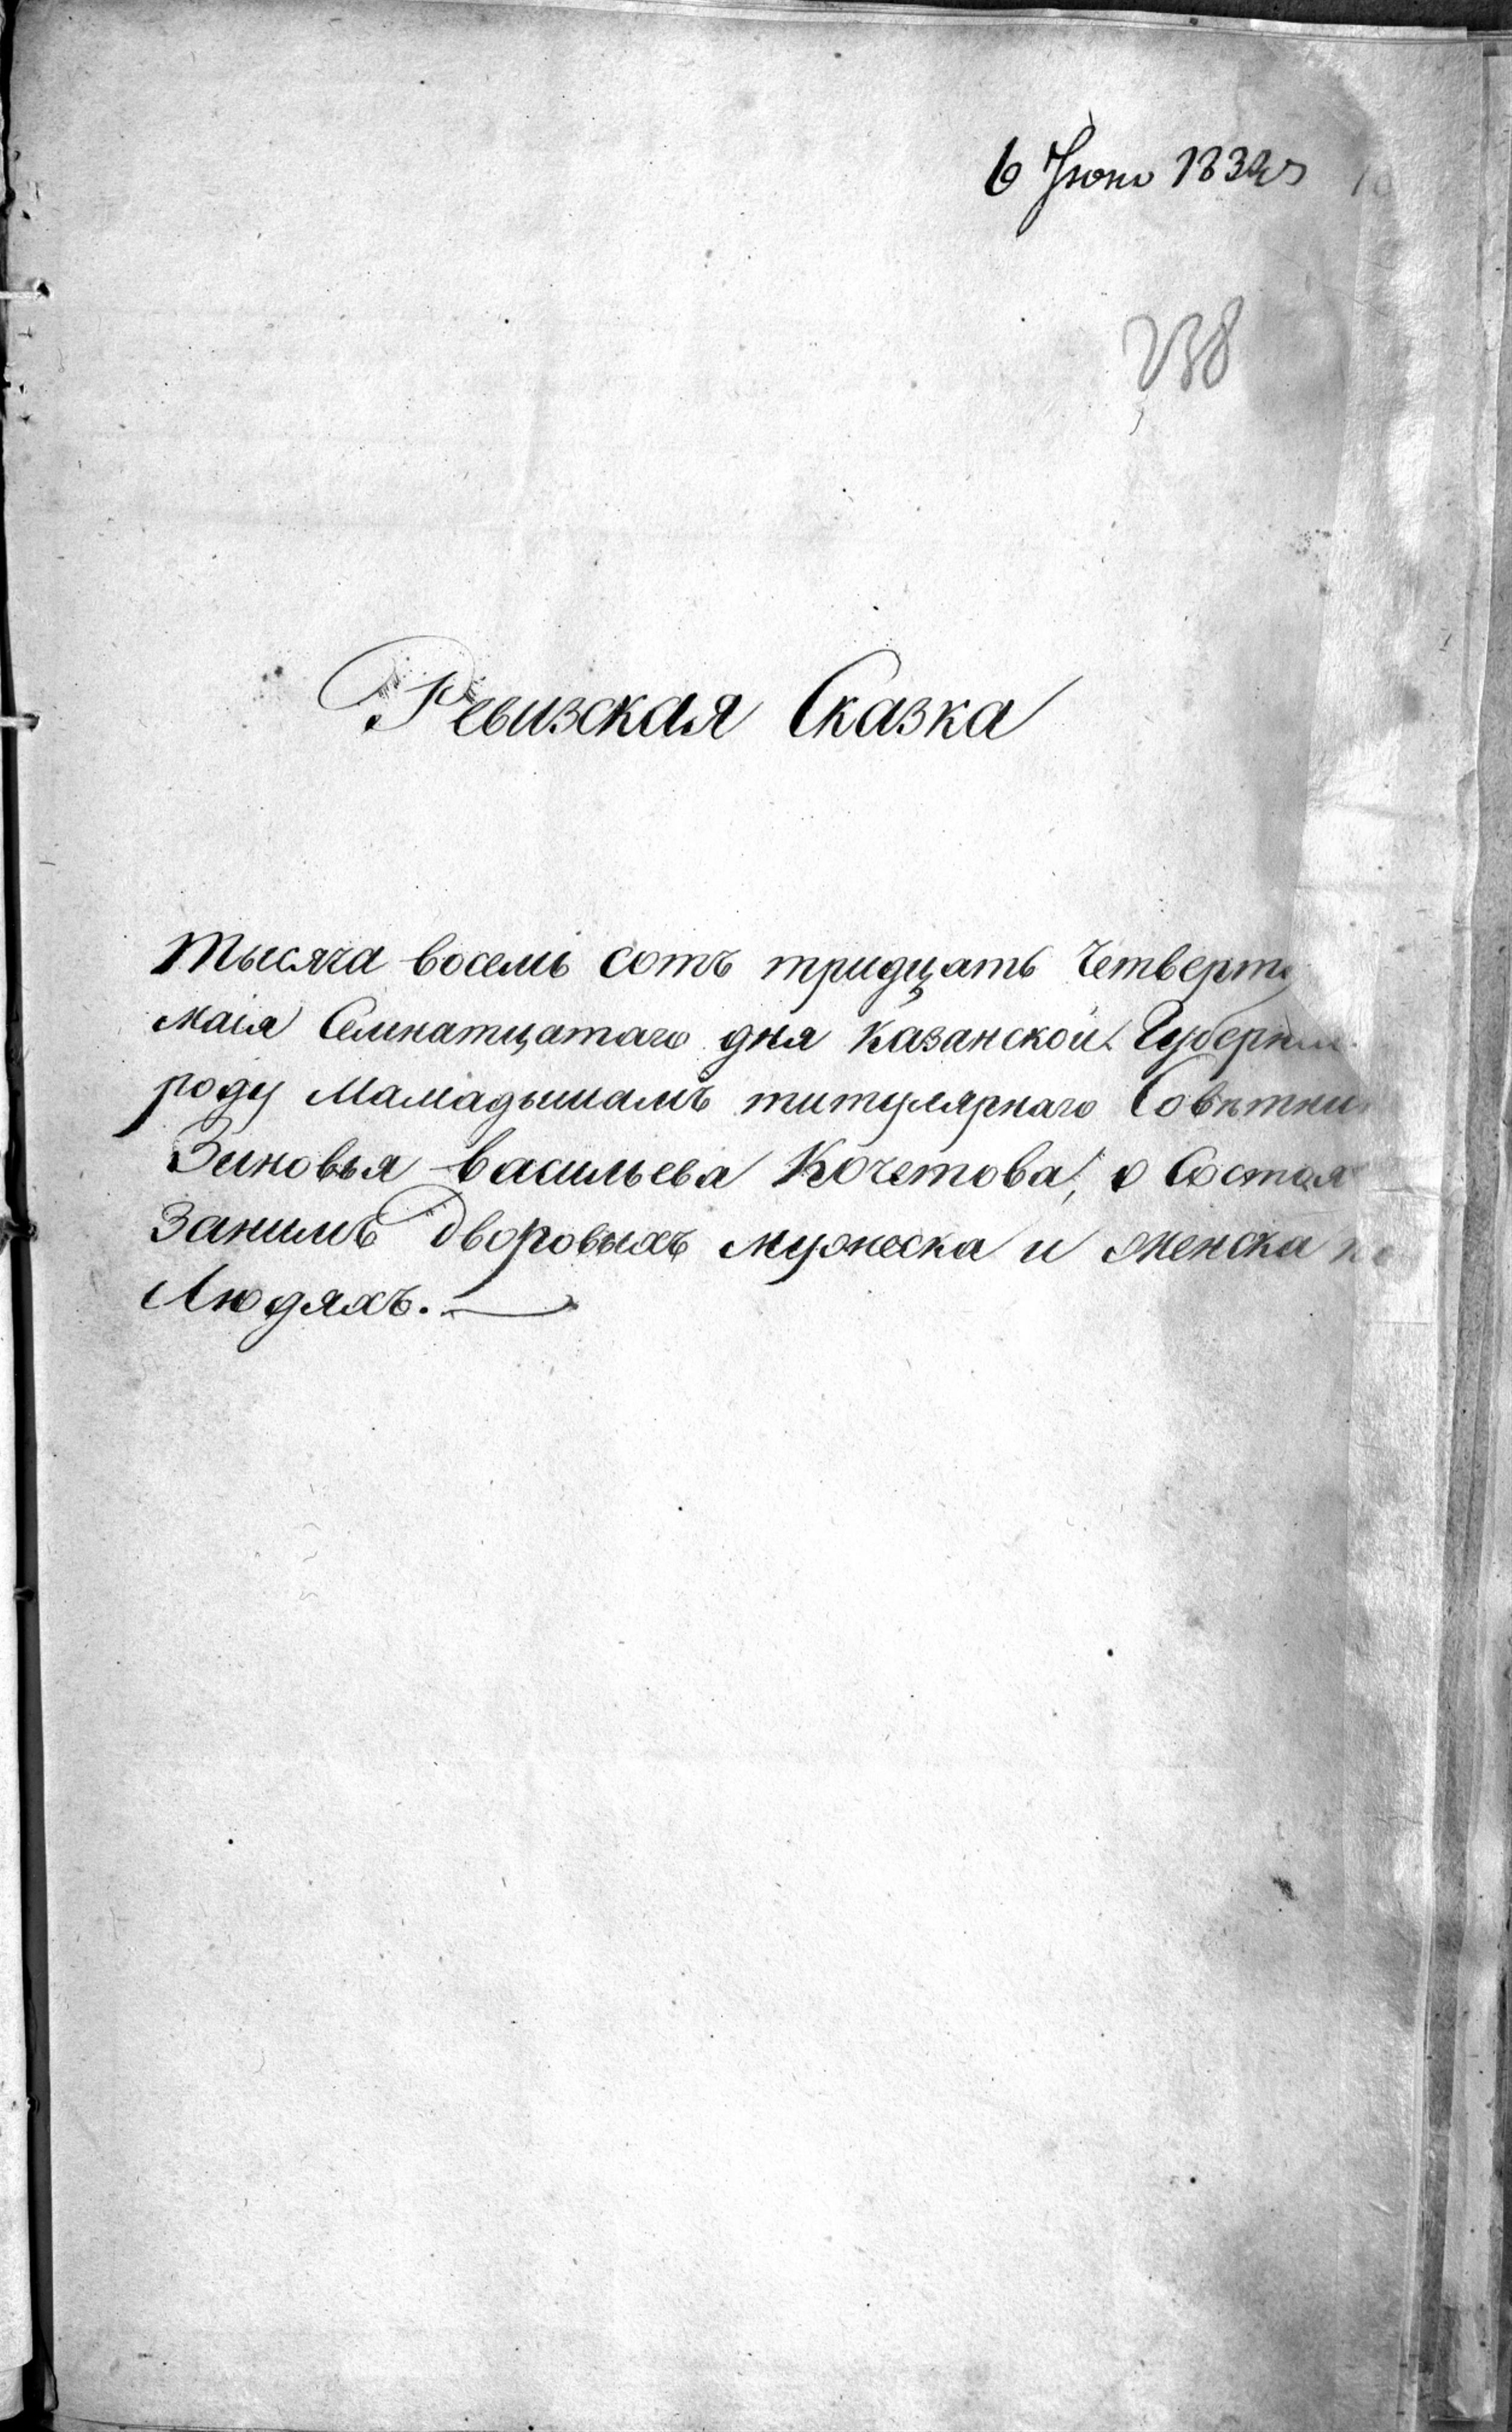 6 Июня 1834
238
Ревизская Сказка
Тысяча восемь сотъ тридцать Четверто
маія Семнатцатаго дня Казанской Губерніи
роду Мамадышамъ титулярнаго Совѣтни
Зиновья Васильева Кочетова, о Состоя
Занимъ Дворовыхъ мужеска и женска по
Людяхъ.